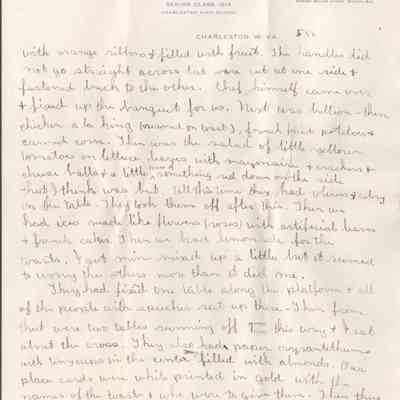 SENIOR CLASS, 1914
CHARLESTON HIGH SCHOOL
CHARLESTON, W. VA.
with orange ribbons & filled with fruit. The handles did
not go straight across but were cut at one side &
fastened back to the other. Chef himself came over
& fixed up the banquet for us. Next was bullion - then
chicken a la king (served on toast), french fried potatoes &
canned corn. Then was the salad of little yellow
tomatoes on lettuce leaves with mayonnaise & crackers &
cheese balls & a little something red down on the side
that I think was but. All this time they had olives & celery
on the table. They took them off after this. Then we
had ices made like flowers (roses) with artificial leaves
& french cakes. Then we had lemonade for the
toasts. I got mine mixed up a little but it seemed
to worry the others more than it did me.
They had fixed one table along the platform & all
of the people with speeches sat up there. Then from
that were two tables running off this way & I sat
about the cross. They also had paper crysanthemums
with tiny cups in the center filled with almonds. Our
place cards were white printed in gold with the
names of the toasts & who were to give them. Then there